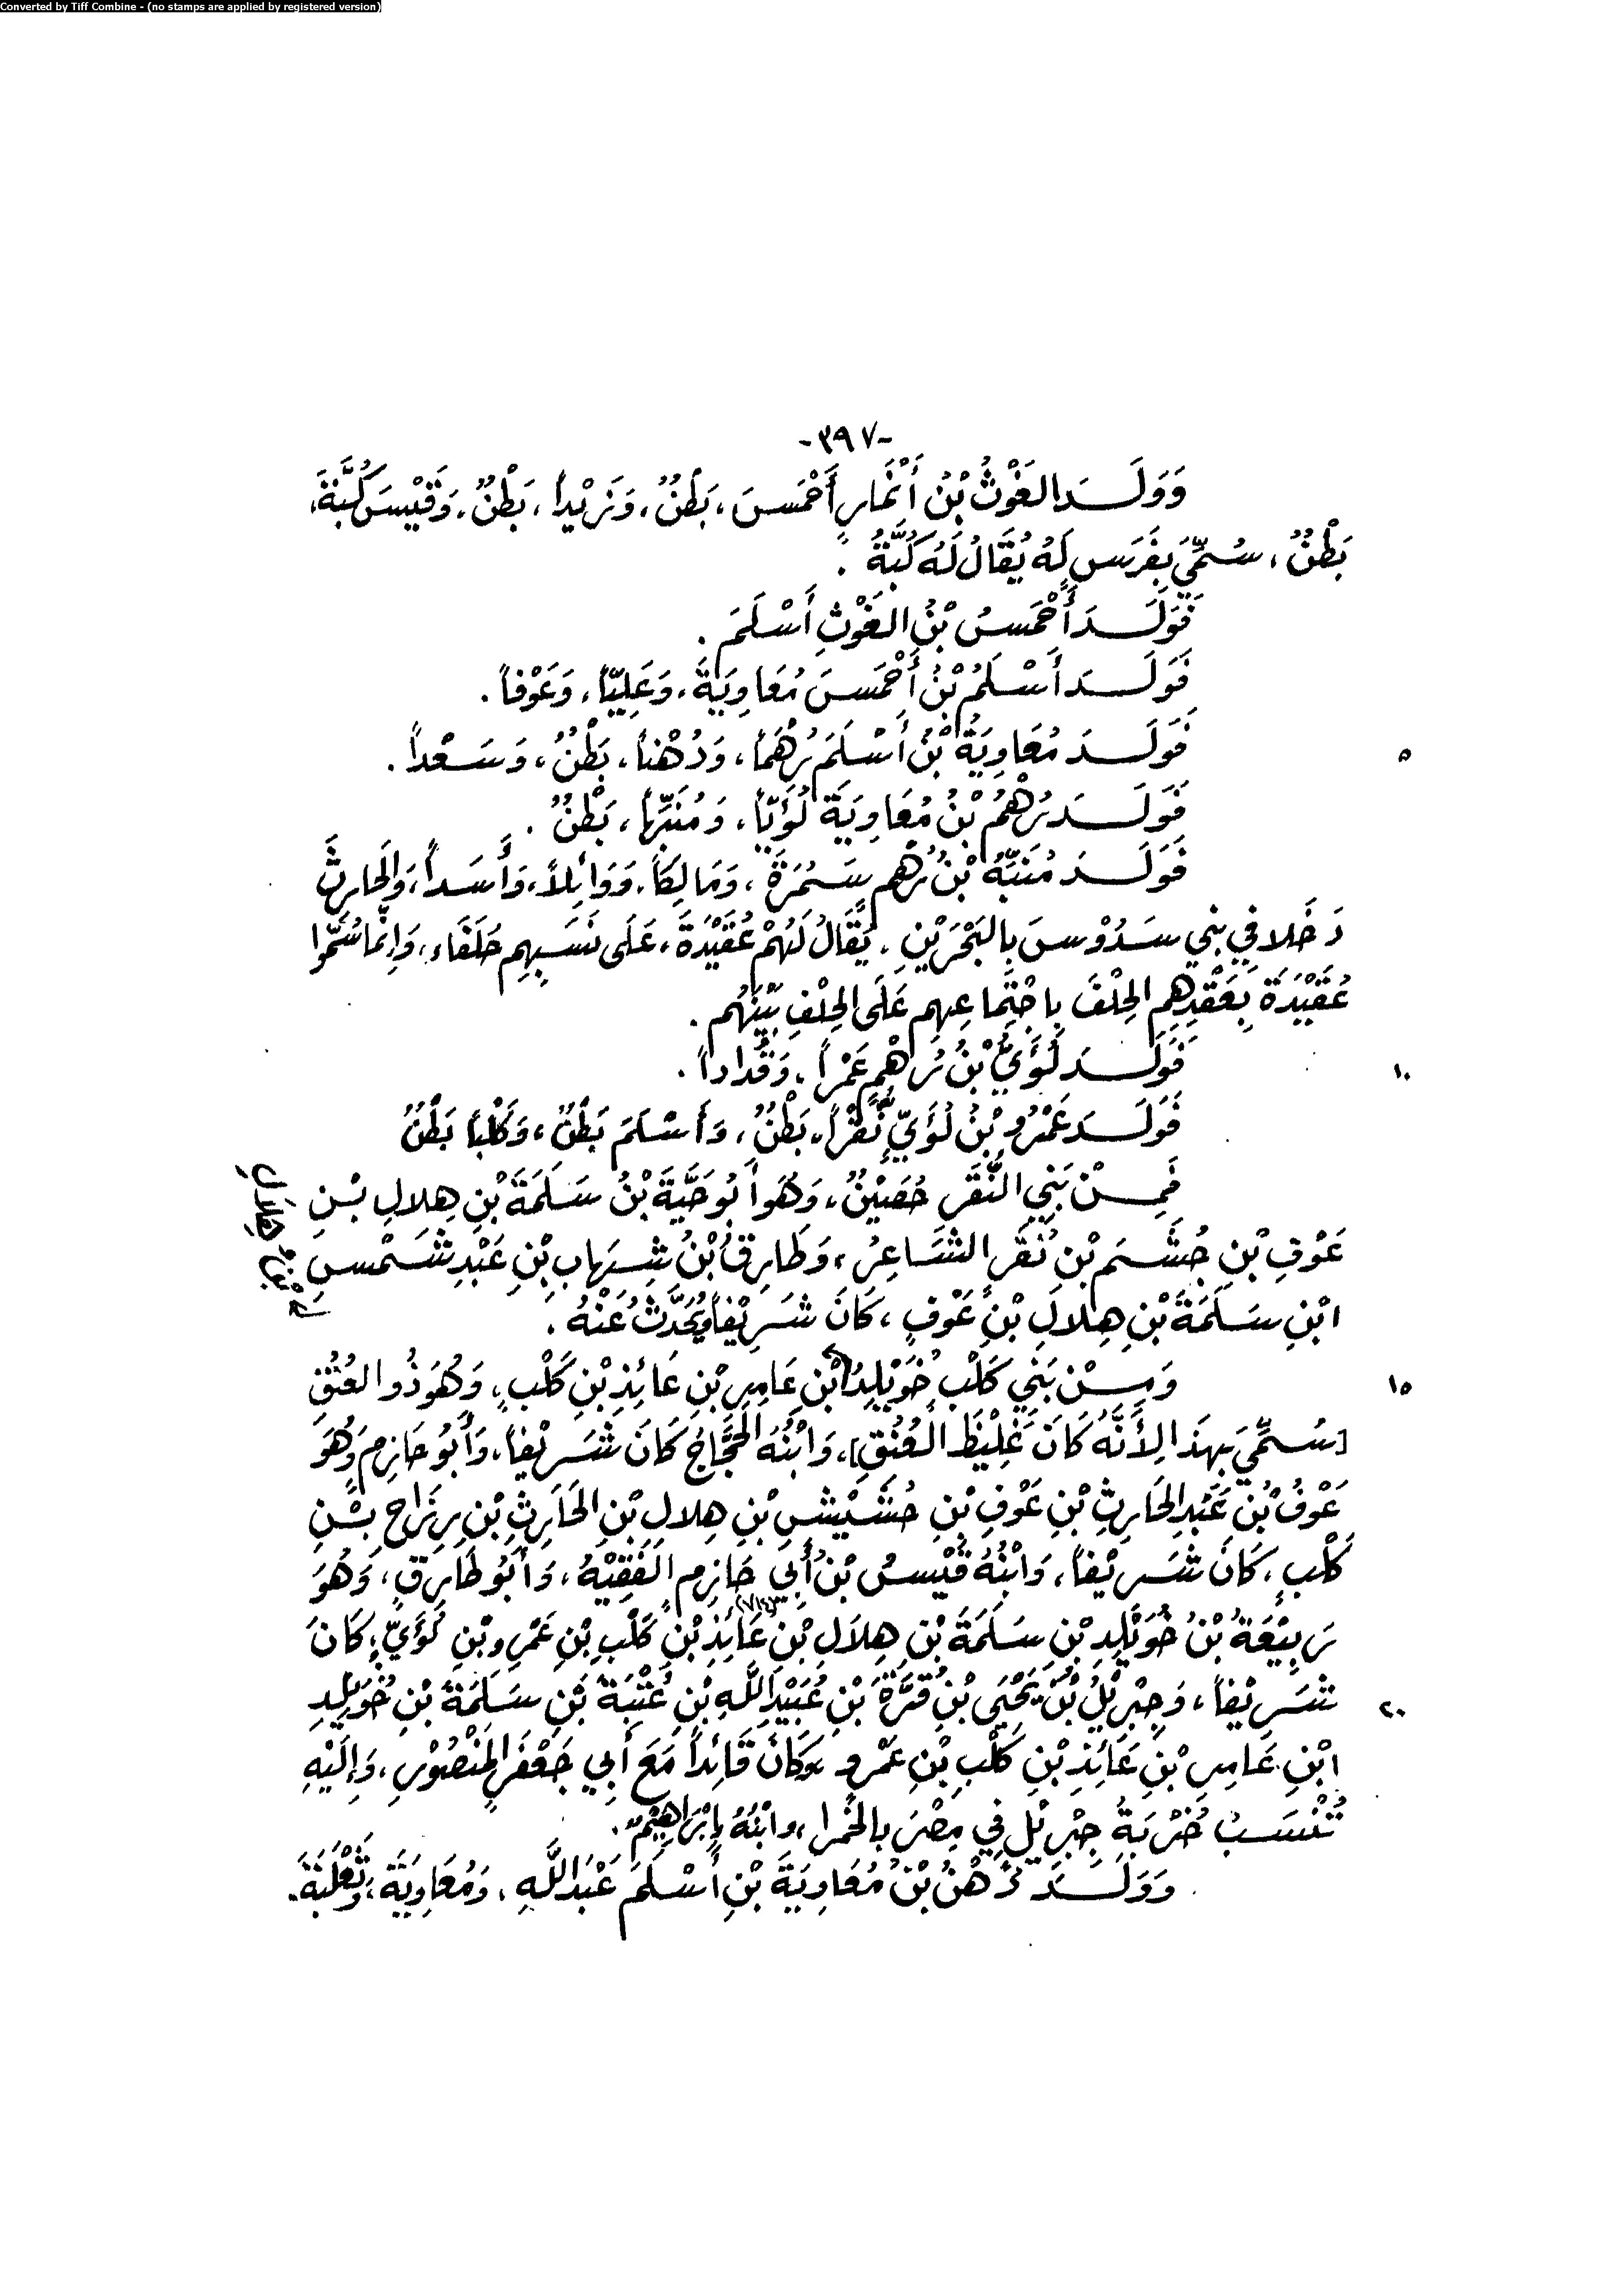 Converted by Tiff Combine - (no stamps are applied by registered version)
-٣٩٧-
وَوَلَدَ الغَوْثُ بْنُ أَنْمَارٍ أَحْمَسَ، بَطْنٌ، وَزَيْداً، بَطْنٌ، وَقَيْسَ كُبَّةَ،
بَطْنٌ، سُمِّيَ بِفَرَسٍ لَهُ يُقَالُ لَهُ كُبَّةُ.
فَوَلَدَ أَحْمَسُ بْنُ الغَوْثِ أَسْلَمَ.
فَوَلَدَ أَسْلَمُ بْنُ أَحْمَسَ مُعَاوِيَةَ، وَعَلِيّاً، وَعَوْفاً.
٥ فَوَلَدَ مُعَاوِيَةُ بْنُ أَسْلَمَ رُهْماً، وَدُهْناً، بَطْنٌ، وَسَعْداً.
فَوَلَدَ رُهْمُ بْنُ مُعَاوِيَةَ لُؤَيّاً، وَمُنَبِّهاً، بَطْنٌ.
فَوَلَدَ مُنَبِّهُ بْنُ رُهْمٍ سَمُرَةَ، وَمَالِكاً، وَوَائِلاً، وَأَسَداً، وَالحَارِثَ
دَخَلا فِي بَنِي سَدُوْسَ بِالبَحْرَيْنِ. يُقَالُ لَهُمْ عُقَيْدَةَ، عَلَى نَسَبِهِم حُلَفَاء، وَإِنَّمَا سُمُّوا
عُقَيْدَةَ بِعَقْدِهِم الحِلْفَ بِاجْتِمَاعِهِم عَلَى الحِلْفِ بَيْنَهُم.
١٠ فَوَلَدَ لُؤَيُّ بْنُ رُهْمٍ عَمْراً، وَقُدَاداً.
فَوَلَدَ عَمْرُو بْنُ لُؤَيٍّ نُقَراً، بَطْنٌ، وَأَسْلَمَ بَطْنٌ، وَكَلْباً بَطْنٌ
فَمِنْ بَنِي النُّقَرِ حُصَيْنٌ، وَهُوَ أَبُو حَيَّةَ بْنُ سَلَمَةَ بْنِ هِلالِ بْنِ
عَوْفِ بْنِ جُشَمِ بْنِ نُقَرِ الشَّاعِرُ، وَطَارِقُ بْنُ شِهَابِ بْنِ عَبْدِ شَمْسِ
بْنِ هِلَالِ
ابْنِ سَلَمَةَ بْنِ هِلالِ بْنِ عَوْفٍ، كَانَ شَرِيْفاً وَيُحَدَّثُ عَنْهُ.
١٥ وَمِنْ بَنِي كَلْبٍ خُوَيْلِدُ ابْنُ عَامِرِ بْنِ عَائِذِ بْنِ كَلْبٍ، وَهُوَ ذُو العُنُقِ
[سُمِّيَ بِهَذَا لِأَنَّهُ كَانَ غَلِيْظَ العُنُقِ]، وَابْنُهُ الحَجَّاجُ كَانَ شَرِيْفاً، وَأَبُو حَازِمٍ وَهُوَ
عَوْفُ بْنُ عَبْدِ الحَارِثِ بْنِ عَوْفِ بْنِ حُشَيْشِ بْنِ هِلالِ بْنِ الحَارِثِ بْنِ رِزَاحِ بْنِ
كَلْبٍ، كَانَ شَرِيْفاً، وَابْنُهُ قَيْسُ بْنُ أَبِي حَازِمٍ الفَقِيْهُ، وَأَبُو طَارِقٍ، وَهُوَ
رَبِيْعَةُ بْنُ خُوَيْلِدِ بْنِ سَلَمَةَ بْنِ هِلَالِ بْنِ عَائِذِ بْنِ كَلْبِ بْنِ عَمْرِو بْنِ لُؤَيٍّ، كَانَ
٢٠ شَرِيْفاً، وَجِبْرِيْلُ بْنُ يَحْيَى بْنِ قُرَّةَ بْنِ عُبَيْدِ اللَّهِ بْنِ عُتْبَةَ بْنِ سَلَمَةَ بْنِ خُوَيْلِدِ
ابْنِ عَامِرِ بْنِ عَائِذِ بْنِ كَلْبِ بْنِ عَمْرٍو وَكَانَ قَائِداً مَعَ أَبِي جَعْفَرٍ المَنْصُوْرِ، وَإِلَيْهِ
تُنْسَبُ خُرْبَةُ جِبْرِيْلَ فِي مِصْرَ بِالحَمْرا، وَابْنُهُ إِبْرَاهِيْمُ.
وَوَلَدَ دُهْنُ بْنُ مُعَاوِيَةَ بْنِ أَسْلَمَ عَبْدَ اللَّهِ، وَمُعَاوِيَةَ، وَثَعْلَبَةَ.